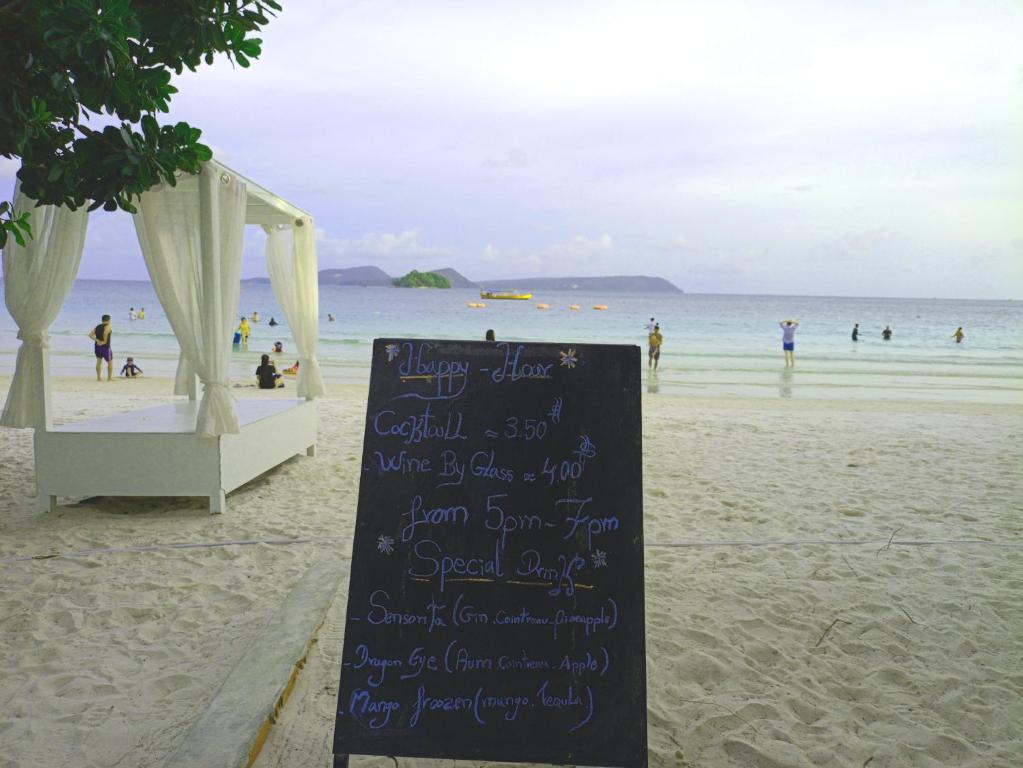 Happy - Hour
Cocktaill ≈ 3.50$
- Wine By Glass ≈ 4.00$
from 5pm - 7pm
Special Drink
- Sensorita (Gin.Cointreau-pineapple)
- Dragon Eye (Rum.Cointreau.Apple)
- Mango froozen (mango.Tequila)